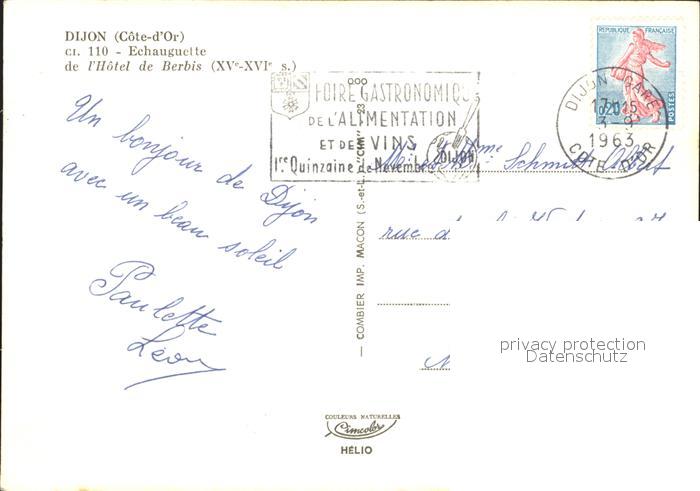 DIJON (Côte-d'Or)
CI. 110 - Echauguette
de l'Hôtel de Berbis (XVe-XVIe s.)
Un bonjour de Dijon
avec un beau soleil
Paulette
Léon
FOIRE GASTRONOMIQUE
DE L'ALIMENTATION
ET DES VINS
1re Quinzaine de Novembre
DIJON
REPUBLIQUE FRANÇAISE
0,20
POSTES
DIJON GARE
17H15
3-9
1963
COTE D'OR
Mme Schmitt
rue
COMBIER IMP. MACON (S.-et-L.) "CIM"
privacy protection
Datenschutz
COULEURS NATURELLES
Cimcolor
HÉLIO